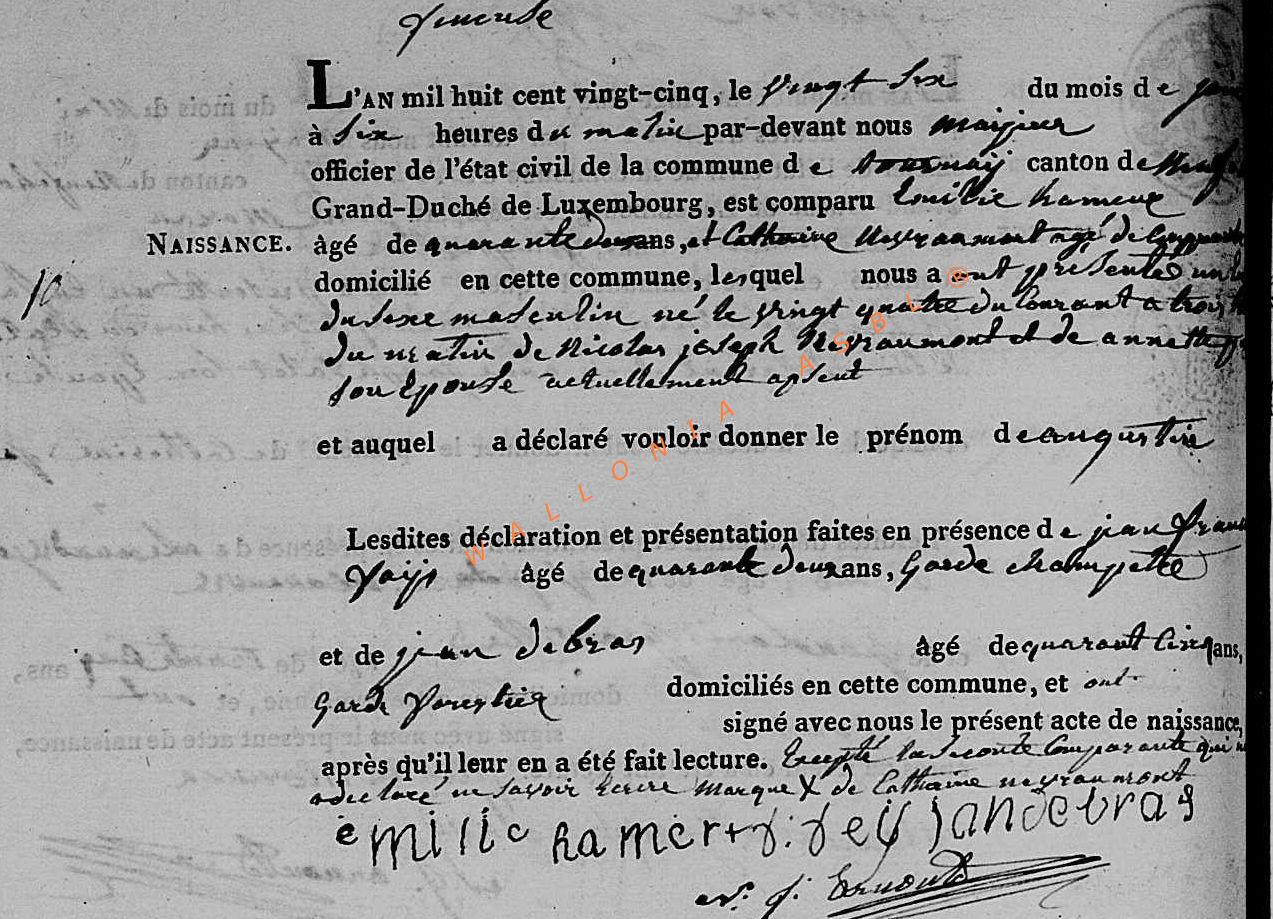 L'AN mil huit cent vingt-cinq, le vingt six du mois de
à six heures du matin par-devant nous
officier de l'état civil de la commune de tournaij canton de
Grand-Duché de Luxembourg, est comparu Emilie hameux
NAISSANCE. âgé de quarante deux ans, et Catherine Neyraumont agé de
domicilié en cette commune, lesquel nous a ont présentés un
10
du sexe masculin né le vingt quatre du Courant a trois
du matin de Nicolas joseph Neyraumont et de annette
son Epouse actuellement apsent
et auquel a déclaré vouloir donner le prénom de augustin
WALLONIA ASBL @
Lesdites déclaration et présentation faites en présence de jean
âgé de quarante deux ans, Garde champette
et de jean debras âgé de quarant Cinq ans,
Garde forestier domiciliés en cette commune, et ont
signé avec nous le présent acte de naissance,
après qu'il leur en a été fait lecture. Excepté la seconde Comparante qui
a declaré ne savoir Ecrire marque X de Catherine neyraumont
emilie hamer jandebras